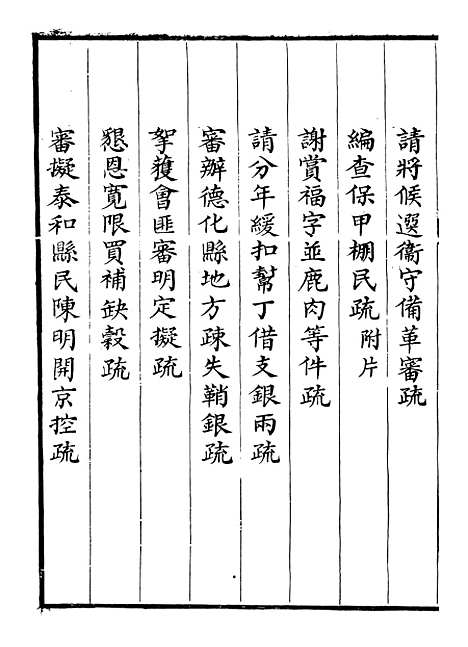 請將候選衞守備革審疏
編查保甲棚民疏附片
謝賞福字並鹿肉等件疏
請分年緩扣幫丁借支銀兩疏
審辦德化縣地方疎失鞘銀疏
拏獲會匪審明定擬疏
懇恩寛限買補缺穀疏
審擬泰和縣民陳明開京控疏